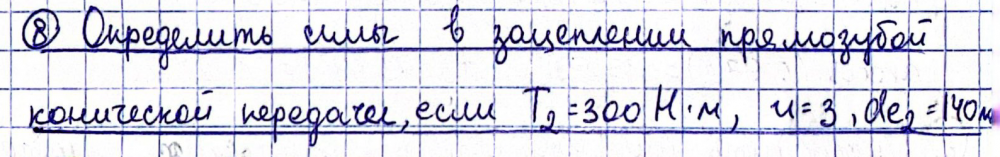 ⑧ Определить силы в зацеплении прямозубой
конической передачи, если T₂=300 Н·м, u=3, de₂=140м